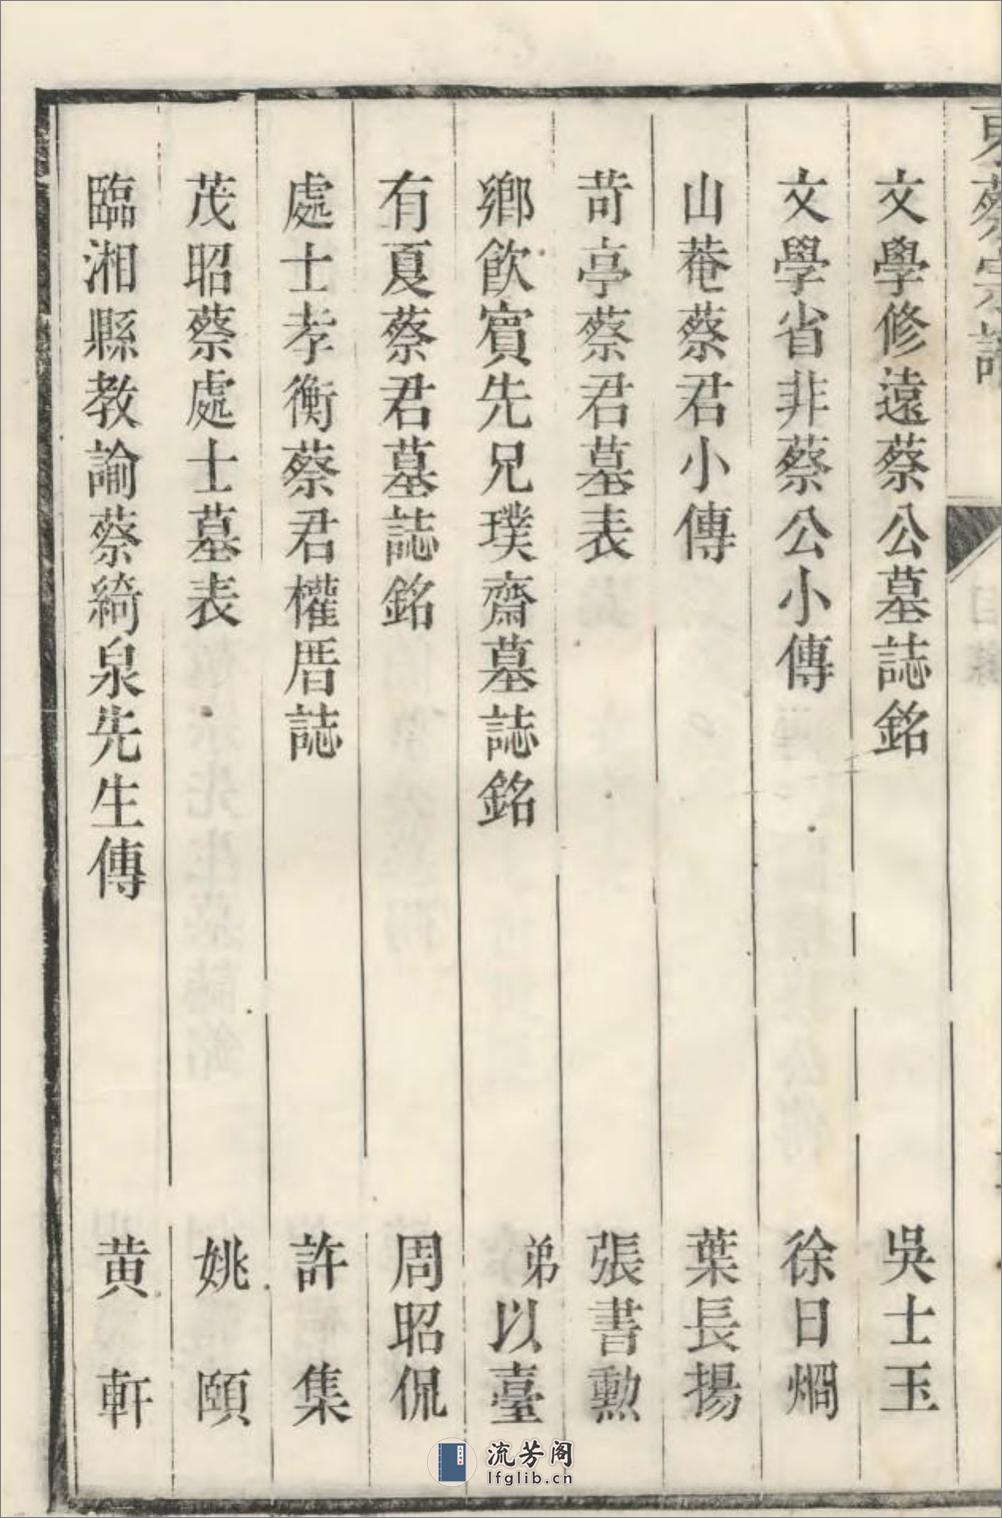 東蔡宗譜
目錄
文學修遠蔡公墓誌銘 吳士玉
文學省非蔡公小傳 徐日燗
山菴蔡君小傳 葉長揚
苛亭蔡君墓表 張書勳
鄉飲賓先兄璞齋墓誌銘 弟以臺
有夏蔡君墓誌銘 周昭侃
處士孝衡蔡君權厝誌 許集
茂昭蔡處士墓表 姚頤
臨湘縣教諭蔡綺泉先生傳 黄軒
流芳阁
lfglib.cn